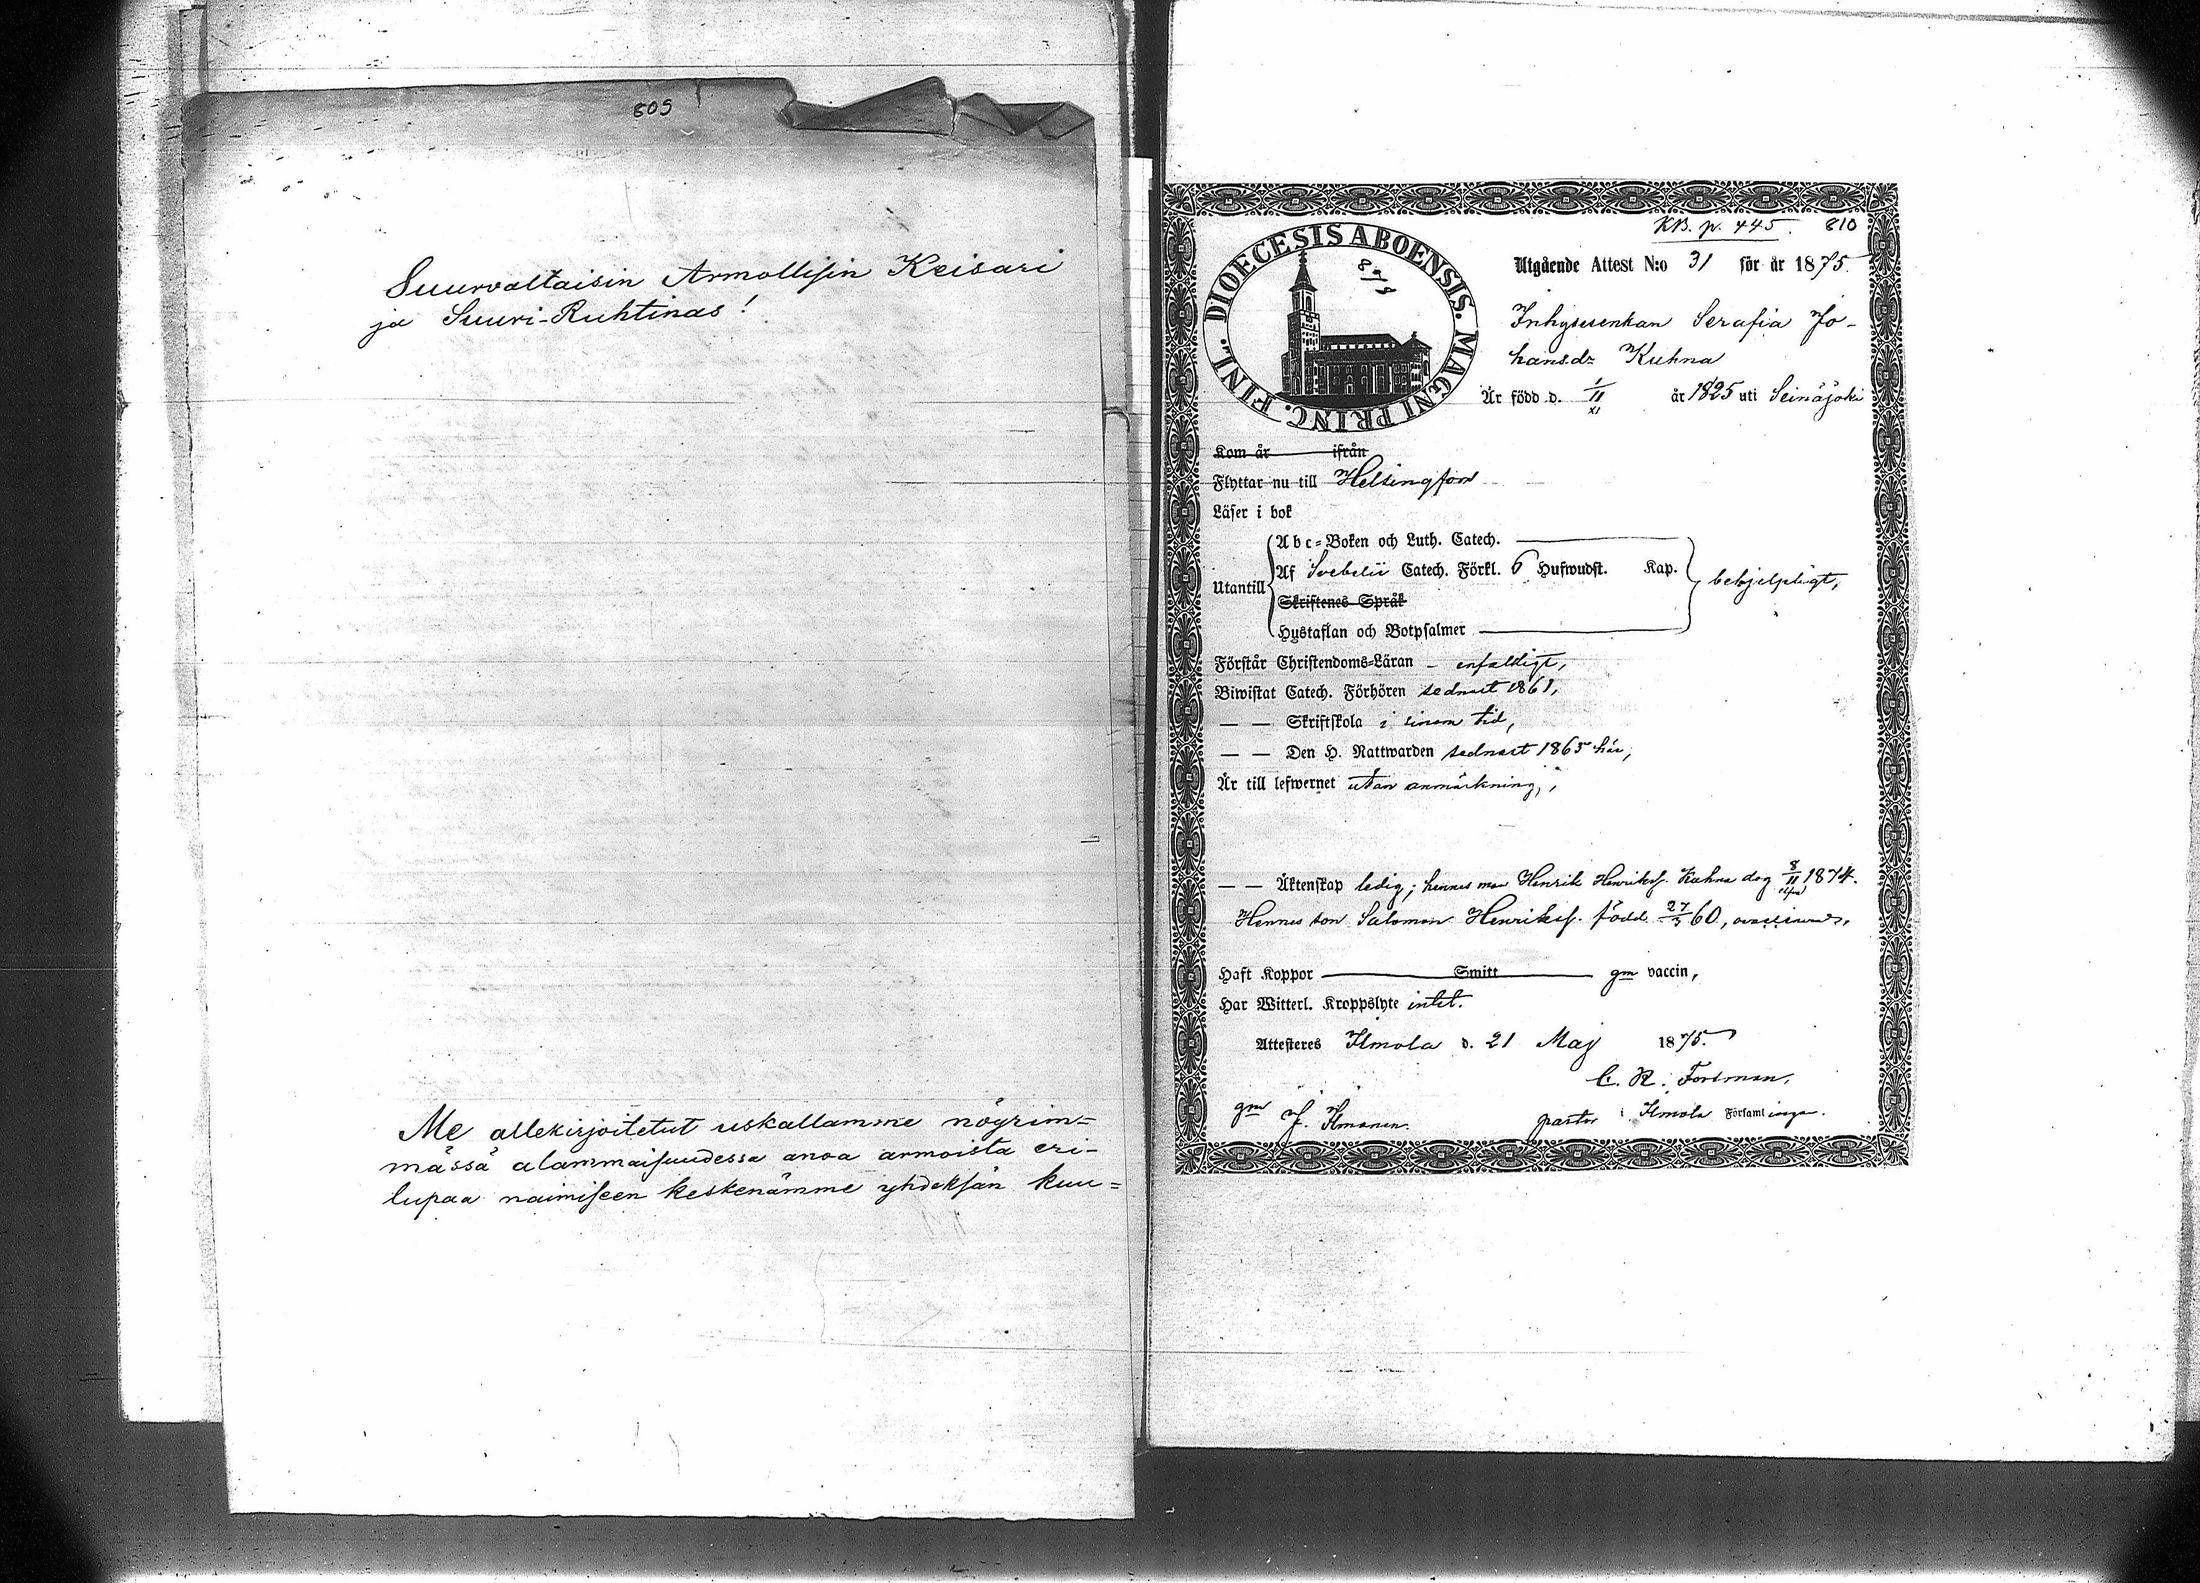 809
Suurvaltaisin Armollisin Keisari
ja Suuri-Ruhtinas!
Me allekirjoitetut uskallamme nöyrim-
mässä alammaisuudessa anoa armoista eri-
lupaa naimiseen keskenämme yhdeksän kuu-
KB. p. 445. 810
DIOECESIS ABOENSIS. MAGNI PRINC. FINL.
Utgående Attest N:o 31 för år 1875.
Inhysesenkan Serafia Jo-
hansdr Kuhna
Är född d. 1/11 XI år 1825 uti Seinäjoki
Kom år ifrån
Flyttar nu till Helsingfors
Läser i bok
Utantill
Abc-Boken och Luth. Catech.
Af Svebelii Catech. Förkl. 6 Hufwudst. Kap.
behjelpligt,
Skriftenes Språk
Hustaflan och Botpsalmer
Förstår Christendoms-Läran – enfaldigt,
Biwistat Catech. Förhören sednast 1861,
— — Skriftskola i sinom tid,
— — Den H. Nattwarden sednast 1865 här,
Är till lefwernet utan anmärkning,
— — Äktenskap ledig; hennes man Henrik Henriksf. Kuhna dog 8/11 1874.
Hennes son Salomon Henriksf. född 27/3 60,
Haft Koppor Smitt gm vaccin,
Har Witterl. Kroppslyte intet.
Attesteres Ilmola d. 21 Maj 1875.
C. R. Forsman,
gm J. Ilmonen. pastor i Ilmola Församlingar.